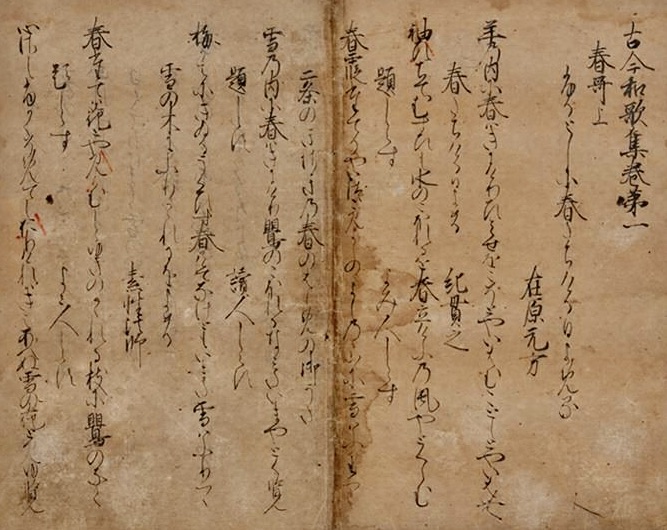 古今和歌集巻第一
春哥上
ふるとしに春たちける日よめる
在原元方
年の内に春はきにけりひとゝせをこそとやいはむことしとやいはむ
春たちける日よめる
紀貫之
袖ひちてむすひし水のこほれるを春立けふの風やとくらむ
題しらす
よみ人しらす
春霞たてるやいつこみよしのゝよしのゝ山に雪はふりつゝ
二条のきさきの春のはしめの御うた
雪の内に春はきにけり鶯のこほれるなみたいまやとく覧
題しらす
讀人しらす
梅かえにきゐるうくひす春かけてなけともいまた雪はふりつゝ
雪の木にふりかゝれるをよめる
素性法師
春たては花とやみらむしらゆきのかゝれる枝に鶯のなく
題しらす
よみ人しらす
心さしふかくそめてしおりけれはきえあへぬ雪の花とみゆ覧